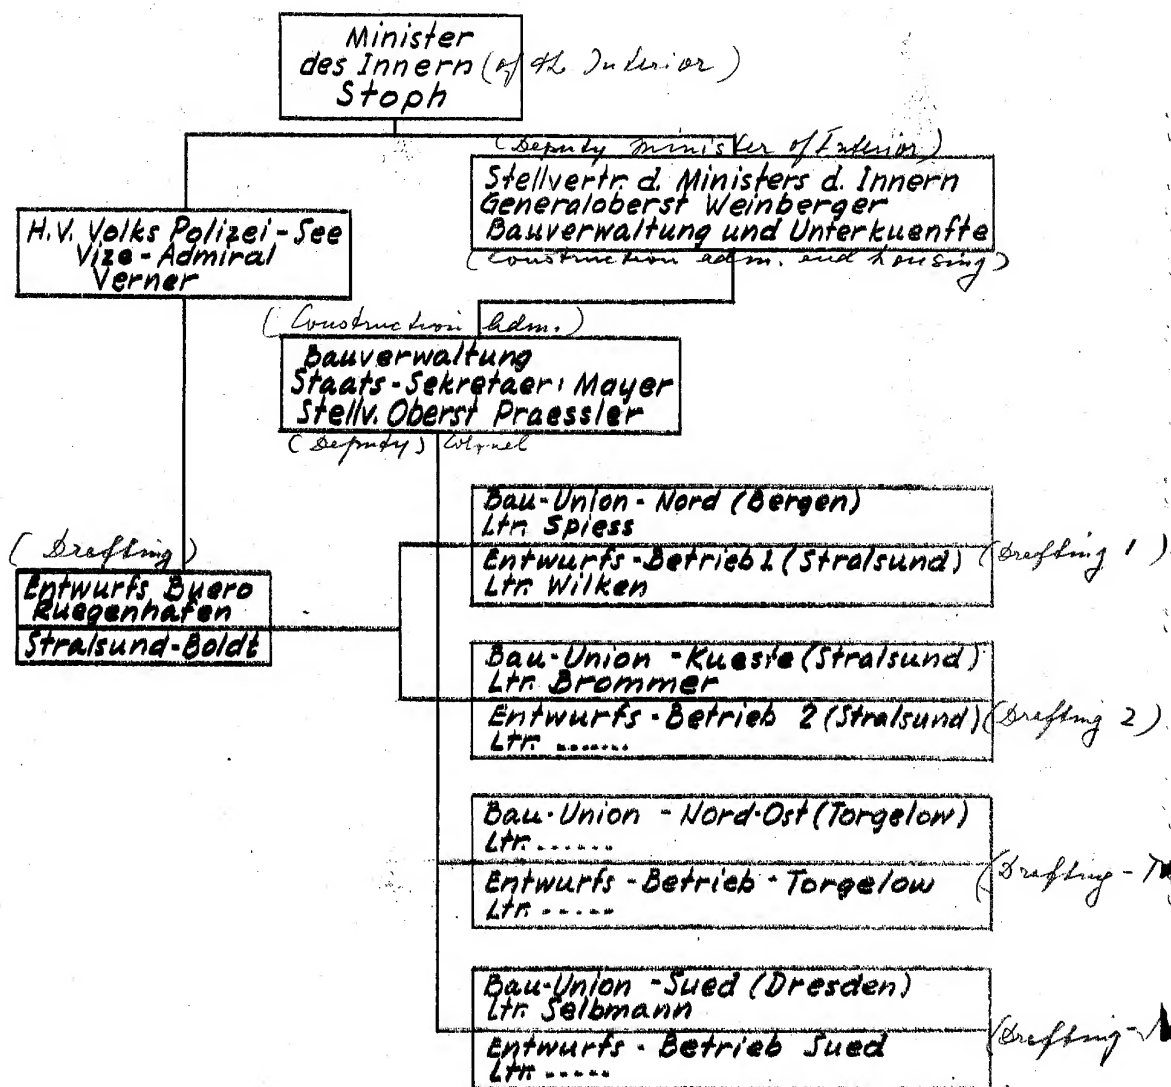 Minister
des Innern (of the Interior)
Stoph
(Deputy Minister of Interior)
Stellvertr. d. Ministers d. Innern
Generaloberst Weinberger
Bauverwaltung und Unterkuenfte
(Construction adm. and housing)
H.V. Volks Polizei-See
Vize-Admiral
Verner
(Construction Adm.)
Bauverwaltung
Staats-Sekretaer: Mayer
Stellv. Oberst Praessler
(Deputy) Colonel
Bau-Union-Nord (Bergen)
Ltr. Spiess
Entwurfs-Betrieb 1 (Stralsund) (Drafting 1)
Ltr. Wilken
(Drafting)
Entwurfs Buero
Ruegenhafen
Stralsund-Boldt
Bau-Union-Kueste (Stralsund)
Ltr. Brommer
Entwurfs-Betrieb 2 (Stralsund) (Drafting 2)
Ltr. .......
Bau-Union-Nord-Ost (Torgelow)
Ltr. ......
Entwurfs-Betrieb-Torgelow (Drafting-
Ltr. .....
Bau-Union-Sued (Dresden)
Ltr. Selbmann
Entwurfs-Betrieb Sued (Drafting-
Ltr. .....